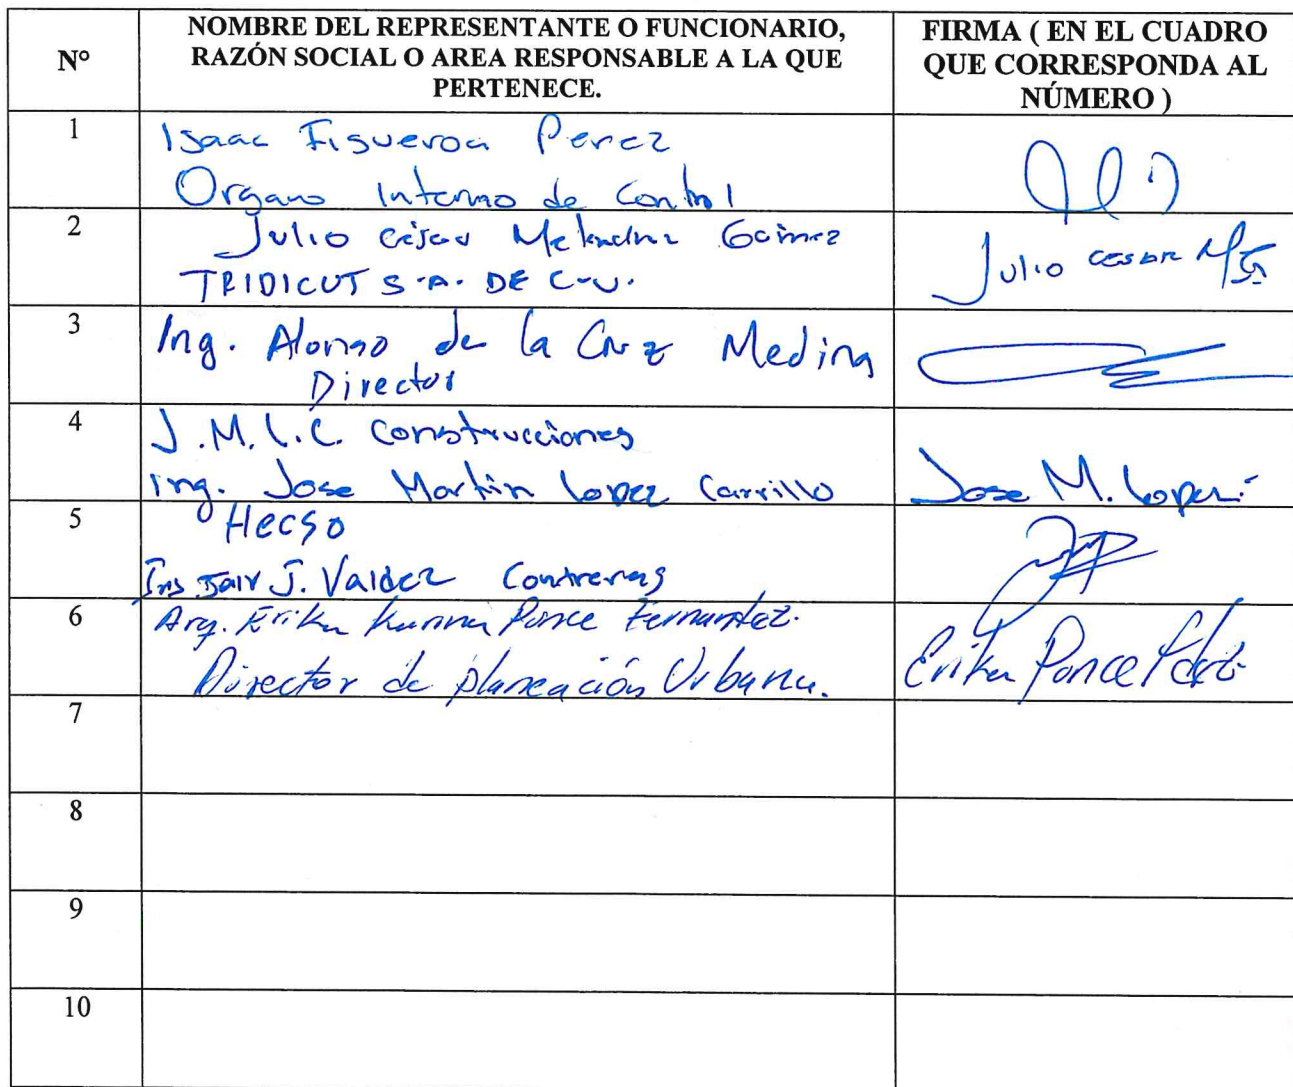 N°
NOMBRE DEL REPRESENTANTE O FUNCIONARIO,
RAZÓN SOCIAL O AREA RESPONSABLE A LA QUE
PERTENECE.
FIRMA ( EN EL CUADRO
QUE CORRESPONDA AL
NÚMERO )
1
Isaac Figueroa Perez
Organo Interno de Control
2
Julio César Gaimez
TRIDICUT S.A. DE C.V.
Julio cesar
3
Ing. Alonso de la Cruz Medina
Director
4
J.M.L.C. Construcciones
Ing. Jose Martin Lopez Carrillo
Jose M. Lopez
5
Hecso
Ing Jair J. Valdez Contreras
6
Arq. Erika Karina Ponce Fernandez.
Director de planeación Urbana.
Erika Ponce
7
8
9
10